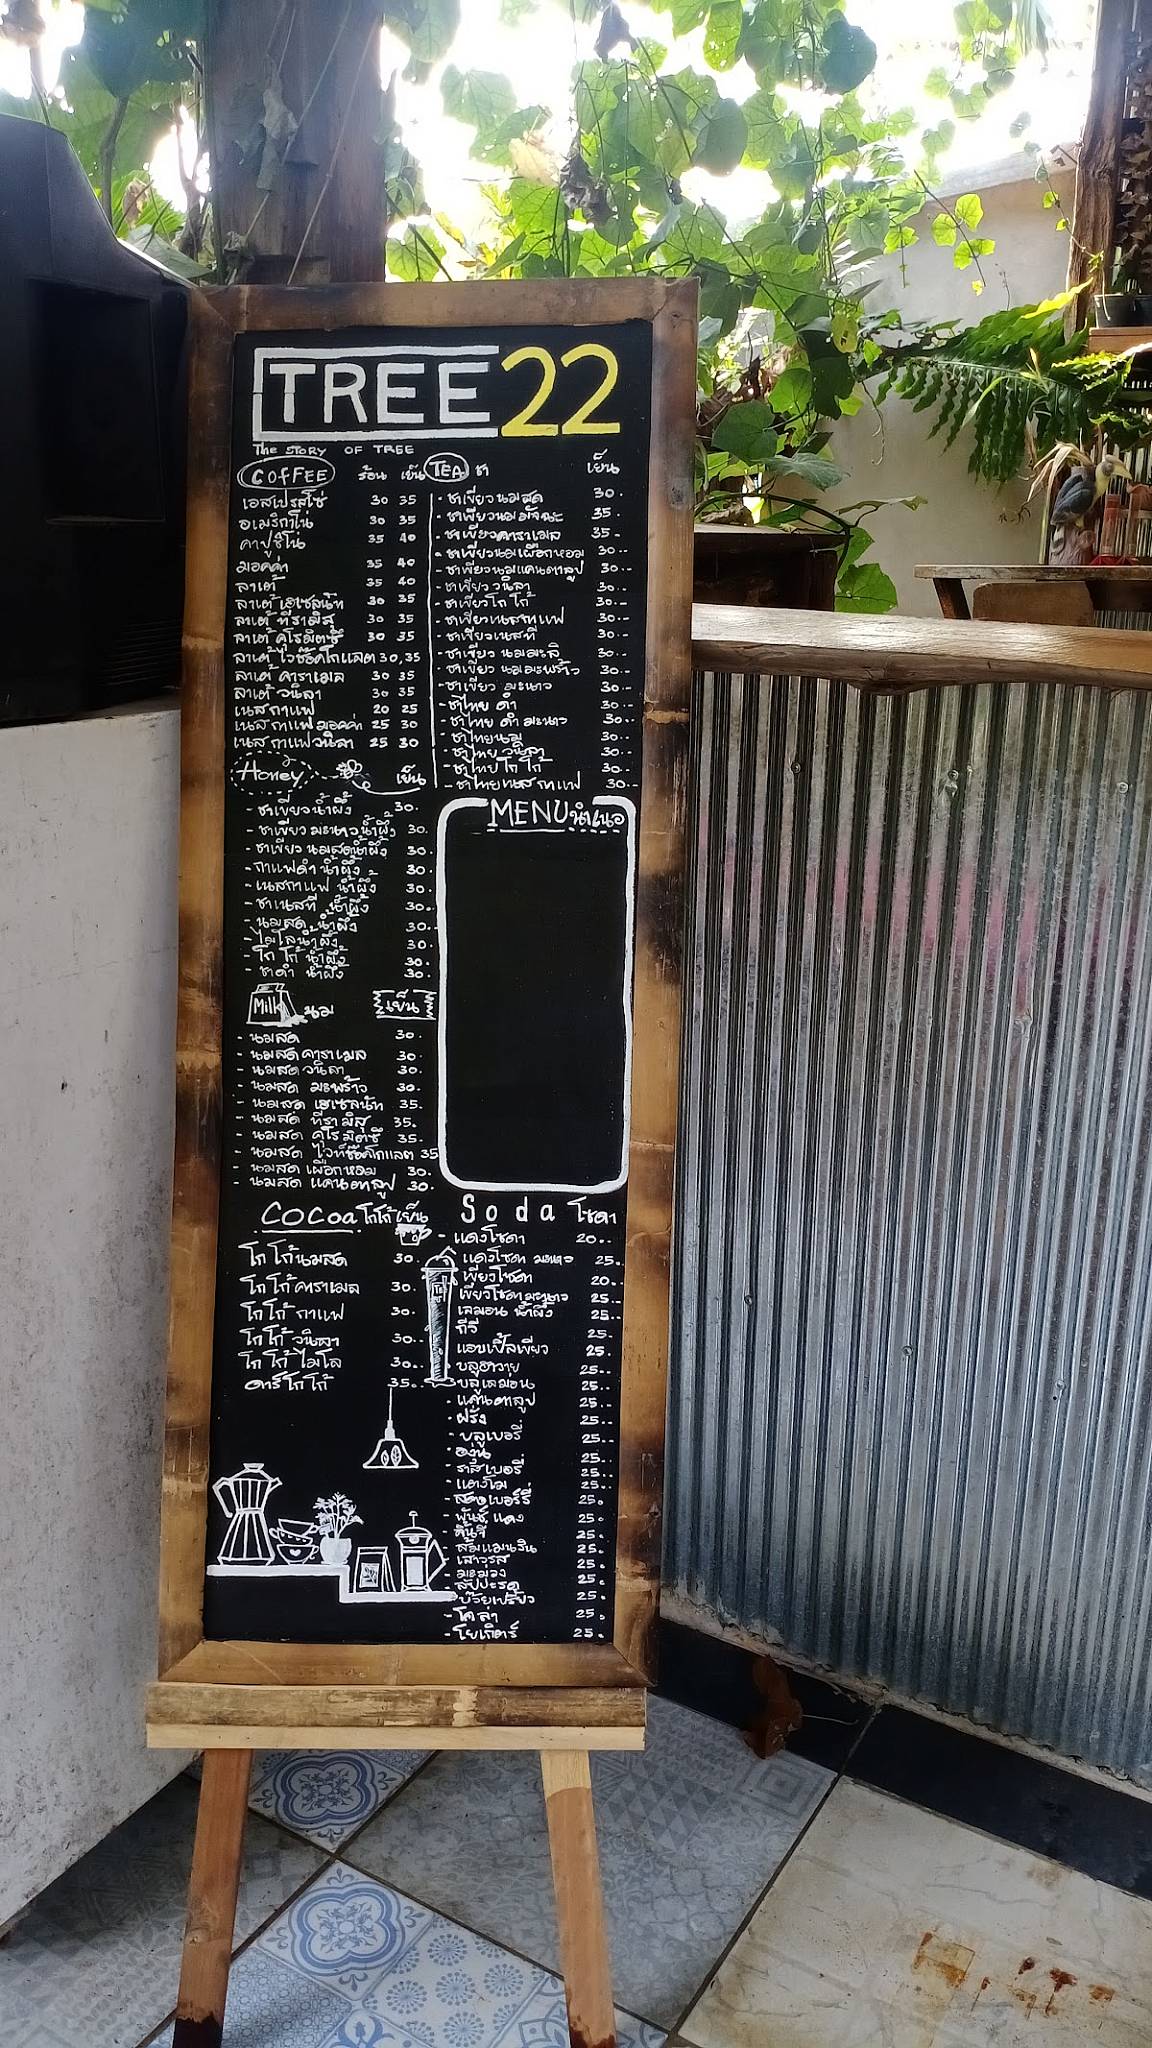 TREE 22
The STORY OF TREE
COFFEE ร้อน เย็น
เอสเปรสโซ่ 30 35
อเมริกาโน 30 35
คาปูชิโน่ 35 40
มอคค่า 35 40
ลาเต้ 35 40
ลาเต้ เฮเซลนัท 30 35
ลาเต้ ทีรามิสุ 30 35
ลาเต้ คุโรมิตซึ 30 35
ลาเต้ ไวช๊อคโกแลต 30,35
ลาเต้ คาราเมล 30 35
ลาเต้ วนิลา 30 35
เนสกาแฟ 20 25
เนสกาแฟ มอคค่า 25 30
เนสกาแฟวนิลา 25 30
TEA ชา เย็น
- ชาเขียวนมสด 30.
- ชาเขียวนมมัจฉะ 35.
- ชาเขียวคาราเมล 35.-
- ชาเขียวนมเผือกหอม 30.-
- ชาเขียวนมแคนตาลูป 30.-
- ชาเขียววนิลา 30.-
- ชาเขียวโกโก้ 30.-
- ชาเขียวเนสกาแฟ 30.-
- ชาเขียวเนสที 30.-
- ชาเขียว นมมะลิ 30.-
- ชาเขียว นมมะพร้าว 30.-
- ชาเขียว มะนาว 30.-
- ชาไทย ดำ 30.-
- ชาไทย ดำ มะนาว 30.-
- ชาไทยนม 30.-
- ชาไทย วนิลา 30.-
- ชาไทย โกโก้ 30.-
- ชาไทยเนสกาแฟ 30.-
Honey เย็น
- ชาเขียวน้ำผึ้ง 30.
- ชาเขียวมะนาวน้ำผึ้ง 30.
- ชาเขียวนมสดน้ำผึ้ง 30.
- กาแฟดำ น้ำผึ้ง 30.
- เนสกาแฟ น้ำผึ้ง 30.
- ชาเนสที น้ำผึ้ง 30.
- นมสด น้ำผึ้ง 30.
- ไมโลน้ำผึ้ง 30.
- โกโก้ น้ำผึ้ง 30.
- ชาดำ น้ำผึ้ง 30.
MENU นำเนอ
Milk นม เย็น
- นมสด 30.
- นมสดคาราเมล 30.
- นมสดวนิลา 30.
- นมสด มะพร้าว 30.
- นมสด เฮเซลนัท 35.
- นมสด ทีรามิสุ 35.
- นมสด คุโรมิตซึ 35.
- นมสด ไวท์ช๊อคโกแลต 35
- นมสด เผือกหอม 30.
- นมสด แคนตาลูป 30.
COCoa โกโก้ เย็น
โกโก้นมสด 30.
โกโก้คาราเมล 30.
โกโก้ กาแฟ 30.
โกโก้ วนิลา 30.
โกโก้ ไมโล 30.
ดาร์โกโก้ 35.
Soda โซดา
- แดงโซดา 20.-
แดงโซดา มะนาว 25.
เขียวโซดา 20.-
เขียวโซดามะนาว 25.-
เลมอน น้ำผึ้ง 25.-
กีวี 25.
แอปเปิ้ลเขียว 25.
- บลูฮาวาย 25.-
- บลูเลม่อน 25.-
- แคนตาลูป 25.-
- ฝรั่ง 25.-
- บลูเบอรี่ 25.-
- องุ่น 25.
- ราสเบอรี่ 25.-
- แตงโม 25.-
- สตอเบอร์รี่ 25.
- พันธ์ แดง 25.
- ลิ้นจี่ 25.
- ส้มแมนดริน 25.
- เสาวรส 25.
- มะม่วง 25.
- สัปปะรด 25.
- บ๊วยเปรี้ยว 25.
- โคล่า 25.
- โยเกิตร์ 25.